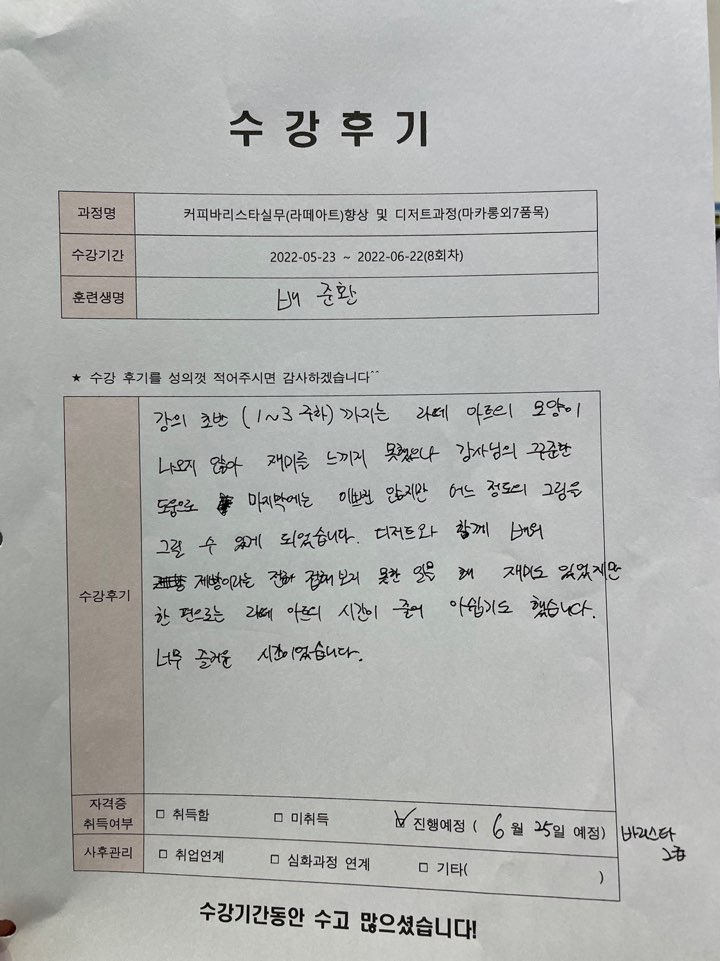 수강후기
과정명 커피바리스타실무(라떼아트)향상 및 디저트과정(마카롱외7품목)
수강기간 2022-05-23 ~ 2022-06-22(8회차)
훈련생명 배 준환
★ 수강 후기를 성의껏 적어주시면 감사하겠습니다^^
수강후기
강의 초반 (1~3주차)까지는 라떼 아트의 모양이
나오지 않아 재미를 느끼지 못했으나 강사님의 꾸준한
도움으로 마지막에는 이쁘진 않지만 어느 정도의 그림을
그릴 수 있게 되었습니다. 디저트와 함께 배워
제빵이라는 전혀 접해보지 못한 일을 해 재미도 있었지만
한 편으로는 라떼 아트의 시간이 줄어 아쉽기도 했습니다.
너무 즐거운 시간이었습니다.
자격증 취득여부 □ 취득함 □ 미취득 ☑ 진행예정 ( 6월 25일 예정) 바리스타
2급
사후관리 □ 취업연계 □ 심화과정 연계 □ 기타( )
수강기간동안 수고 많으셨습니다!